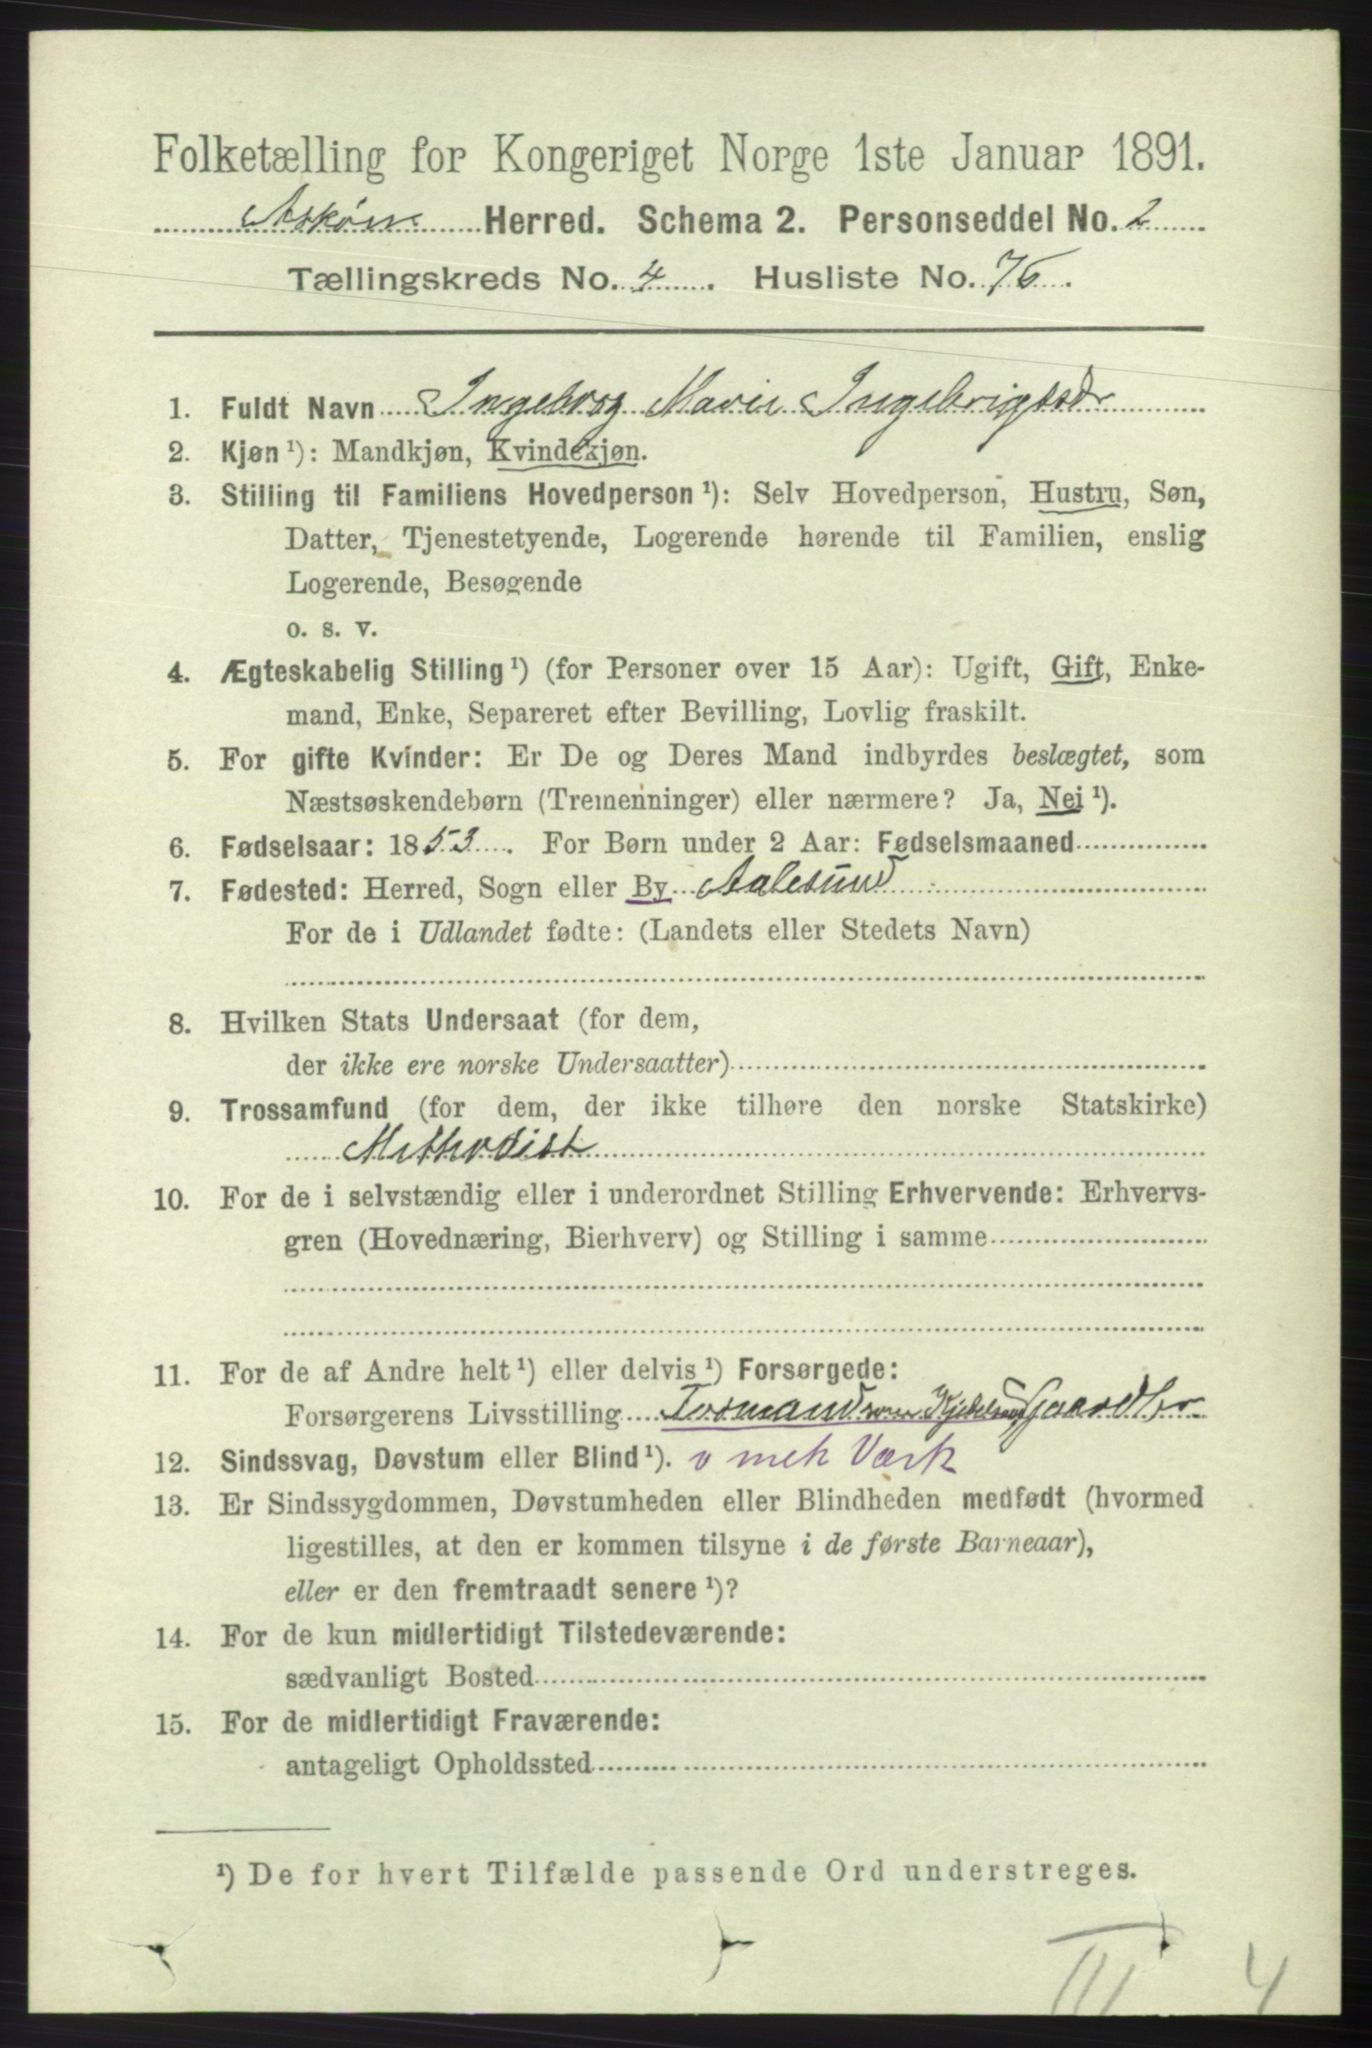 Folketælling for Kongeriget Norge 1ste Januar 1891.
Askøen Herred. Schema 2. Personseddel No. 2
Tællingskreds No. 4. Husliste No. 76.
1. Fuldt Navn Ingeborg Marie Ingebrigtsdr
2. Kjøn ¹): Mandkjøn, Kvindekjøn.
3. Stilling til Familiens Hovedperson ¹): Selv Hovedperson, Hustru, Søn,
Datter, Tjenestetyende, Logerende hørende til Familien, enslig
Logerende, Besøgende
o. s. v.
4. Ægteskabelig Stilling ¹) (for Personer over 15 Aar): Ugift, Gift, Enke-
mand, Enke, Separeret efter Bevilling, Lovlig fraskilt.
5. For gifte Kvinder: Er De og Deres Mand indbyrdes beslægtet, som
Næstsøskendebørn (Tremenninger) eller nærmere? Ja, Nei ¹).
6. Fødselsaar: 1853. For Børn under 2 Aar: Fødselsmaaned
7. Fødested: Herred, Sogn eller By Aalesund
For de i Udlandet fødte: (Landets eller Stedets Navn)
8. Hvilken Stats Undersaat (for dem,
der ikke ere norske Undersaatter)
9. Trossamfund (for dem, der ikke tilhøre den norske Statskirke)
Methodist
10. For de i selvstændig eller i underordnet Stilling Erhvervende: Erhvervs-
gren (Hovednæring, Bierhverv) og Stilling i samme
11. For de af Andre helt ¹) eller delvis ¹) Forsørgede:
Forsørgerens Livsstilling Formand
12. Sindssvag, Døvstum eller Blind ¹). v mek Værk
13. Er Sindssygdommen, Døvstumheden eller Blindheden medfødt (hvormed
ligestilles, at den er kommen tilsyne i de første Barneaar),
eller er den fremtraadt senere ¹)?
14. For de kun midlertidigt Tilstedeværende:
sædvanligt Bosted
15. For de midlertidigt Fraværende:
antageligt Opholdssted
¹) De for hvert Tilfælde passende Ord understreges.
III 4